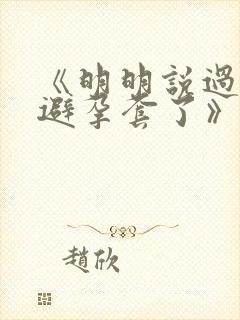 《明明說過
避孕套了》
趙欣